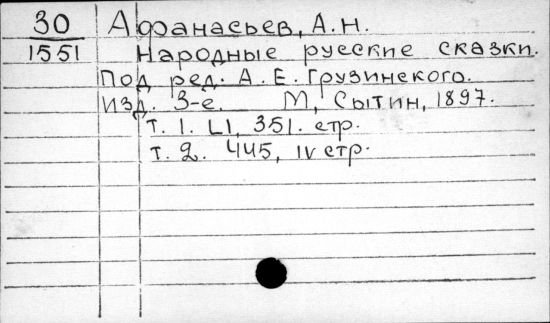 30 Афанасьев, А.Н.
1551 Народные русские сказки.
Под ред. А.Е. Грузинского.
Изд. 3-е. М, Сытин, 1897.
т. 1. LI, 351. стр.
т. 2. 445, IV стр.